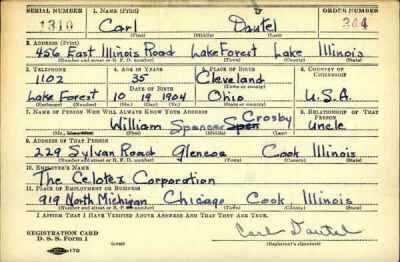 SERIAL NUMBER 1. NAME (Print) ORDER NUMBER
1310 Carl Dautel 344
(First) (Middle) (Last)
2. ADDRESS (Print)
456 East Illinois Road Lake Forest Lake Illinois
(Number and street or R. F. D. number) (Town) (County) (State)
3. TELEPHONE 4. AGE IN YEARS 5. PLACE OF BIRTH 6. COUNTRY OF CITIZENSHIP
1102 35 Cleveland
DATE OF BIRTH (Town or county)
Lake Forest 10 19 1904 Ohio U.S.A.
(Exchange) (Number) (Mo.) (Day) (Yr.) (State or country)
7. NAME OF PERSON WHO WILL ALWAYS KNOW YOUR ADDRESS 8. RELATIONSHIP OF THAT PERSON
William Spencer Crosby Uncle
(First) (Middle) (Last)
9. ADDRESS OF THAT PERSON
229 Sylvan Road Glencoe Cook Illinois
(Number and street or R. F. D. number) (Town) (County) (State)
10. EMPLOYER'S NAME
The Celotex Corporation
11. PLACE OF EMPLOYMENT OR BUSINESS
919 North Michigan Chicago Cook Illinois
(Number and street or R. F. D. number) (Town) (County) (State)
I AFFIRM THAT I HAVE VERIFIED ABOVE ANSWERS AND THAT THEY ARE TRUE.
REGISTRATION CARD Carl Dautel
D. S. S. Form 1 (over) (Registrant's signature)